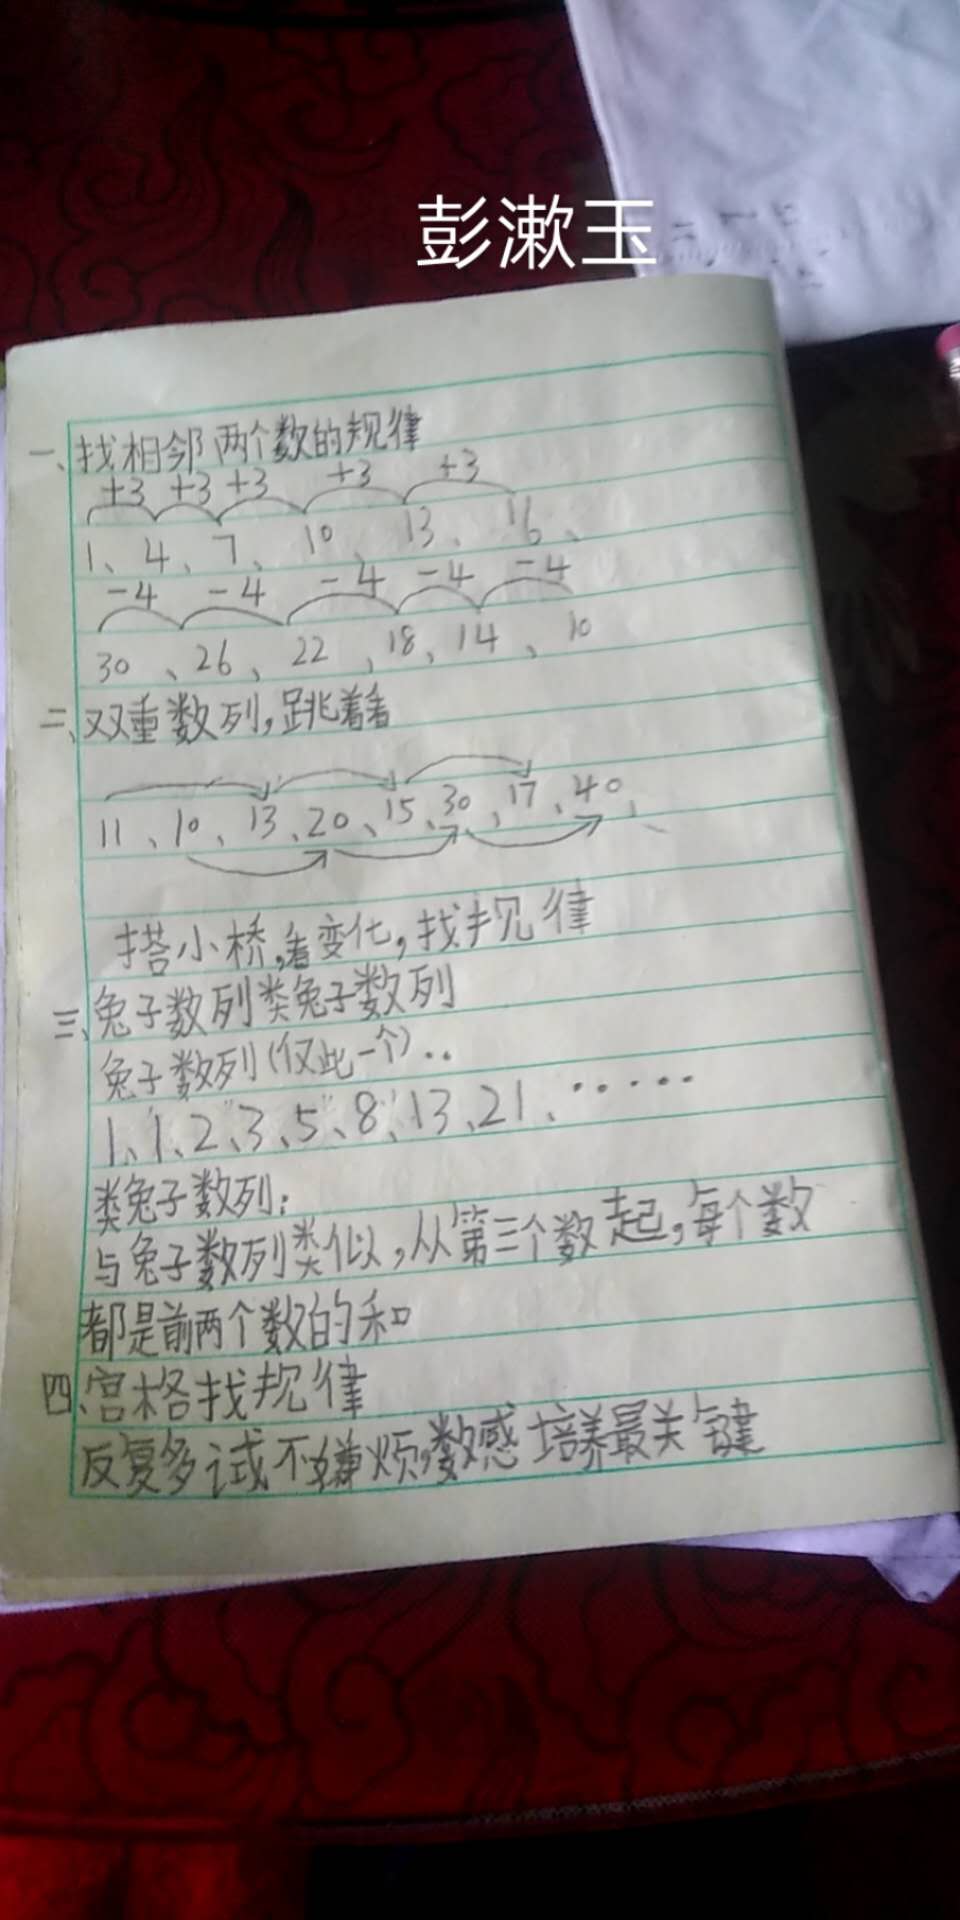 彭漱玉
一、找相邻两个数的规律
+3 +3 +3 +3 +3
1、4、7、10、13、16、
-4 -4 -4 -4 -4
30、26、22、18、14、10
二、双重数列,跳着看
11、10、13、20、15、30、17、40、
搭小桥,看变化,找规律
三、兔子数列类兔子数列
兔子数列(仅此一个)..
1、1、2、3、5、8、13、21、······
类兔子数列:
与兔子数列类似,从第三个数起,每个数
都是前两个数的和
四、宫格找规律
反复多试不嫌烦,数感培养最关键